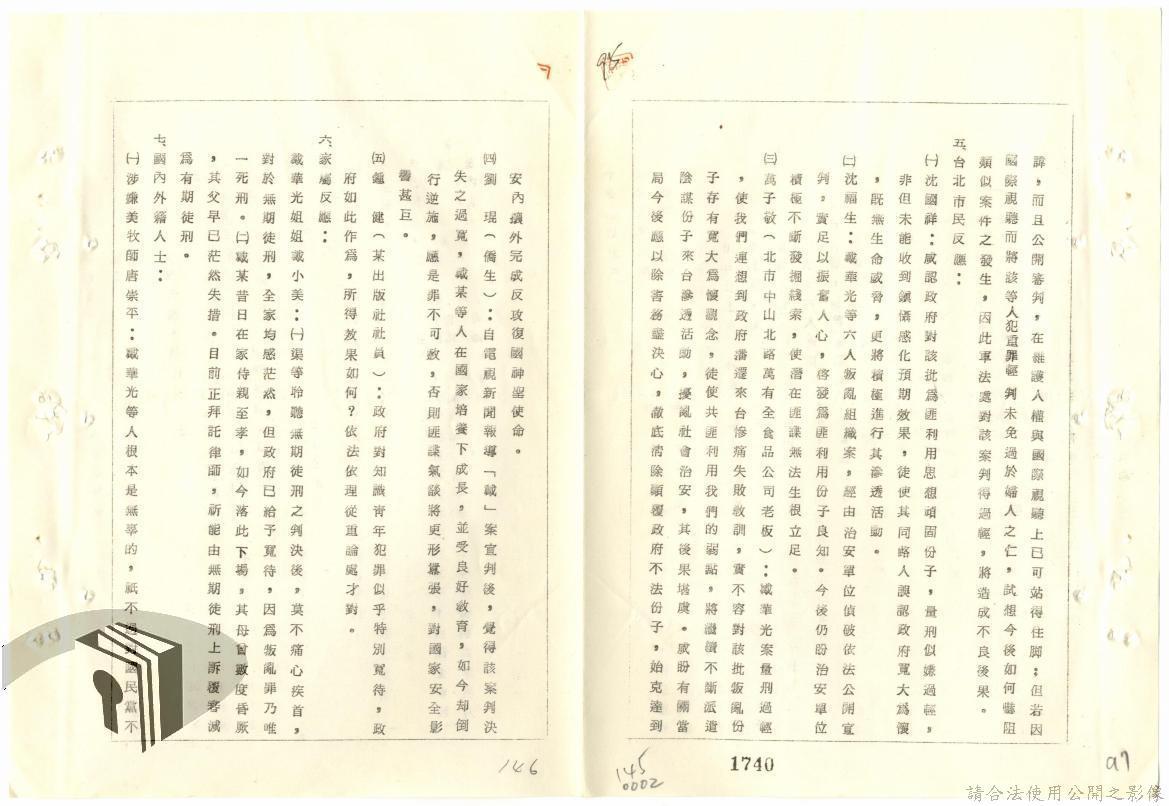 諱，而且公開審判，在維護人權與國際視聽上已可站得住脚；但若因
國際視聽而將該等人犯重罪輕判未免過於婦人之仁，試想今後如何嚇阻
類似案件之發生，因此軍法處對該案判得過輕，將造成不良後果。
五、台北市民反應：
㈠沈國祥：咸認政府對該批爲匪利用思想頑固份子，量刑似嫌過輕，
非但未能收到鎮懾感化預期效果，徒使其同路人誤認政府寬大爲懷
，既無生命威脅，更將積極進行其滲透活動。
㈡沈福生：戴華光等六人叛亂組織案，經由治安單位偵破依法公開宣
判，實足以振奮人心，啓發爲匪利用份子良知。今後仍盼治安單位
積極不斷發掘綫索，使潛在匪諜無法生根立足。
㈢萬子敏（北市中山北路萬有全食品公司老板）：戴華光案量刑過輕
，使我們連想到政府播遷來台慘痛失敗教訓，實不容對該批叛亂份
子存有寬大爲懷觀念，徒使共匪利用我們的弱點，將繼續不斷派遣
陰謀份子來台滲透活動，擾亂社會治安，其後果堪虞。咸盼有關當
局今後應以除害務盡決心，澈底清除顛覆政府不法份子，始克達到
97
1740
145
0002
安內攘外完成反攻復國神聖使命。
㈣劉　琨（僑生）：自電視新聞報導「戴」案宣判後，覺得該案判決
失之過寬，戴某等人在國家培養下成長，並受良好教育，如今却倒
行逆施，應是罪不可赦，否則匪諜氣談將更形囂張，對國家安全影
響甚巨。
㈤鍾　健（某出版社社員）：政府對知識青年犯罪似乎特別寬待，政
府如此作爲，所得效果如何？依法依理從重論處才對。
六、家屬反應：
戴華光姐姐戴小美：㈠渠等聆聽無期徒刑之判決後，莫不痛心疾首，
對於無期徒刑，全家均感茫然，但政府已給予寬待，因爲叛亂罪乃唯
一死刑。㈡戴某昔日在家侍親至孝，如今落此下場，其母曾數度昏厥
，其父早已茫然失措。目前正拜託律師，祈能由無期徒刑上訴後容減
爲有期徒刑。
七、國內外籍人士：
㈠涉嫌美牧師唐崇平：戴華光等人根本是無辜的，祇不過對國民黨不
146
請合法使用公開之影像